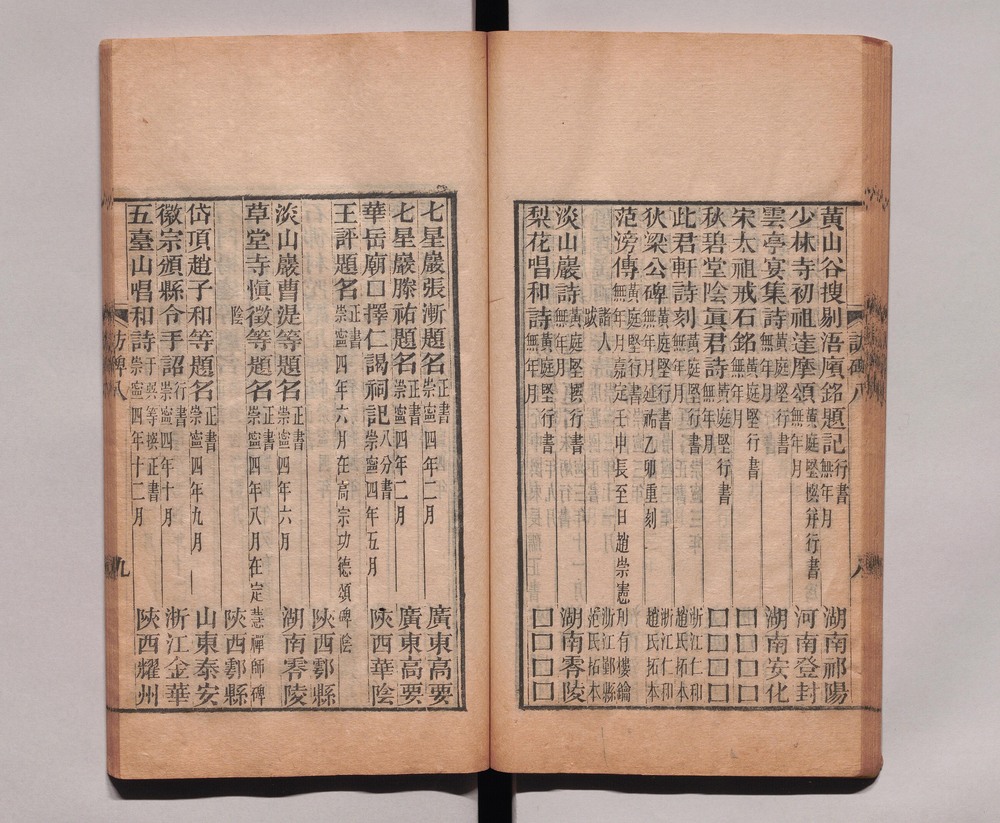 黃山谷搜剔浯廎銘題記行書無年月 湖南祁陽
少林寺初祖達摩頌黃庭堅撰并行書無年月 河南登封
雲亭宴集詩黃庭堅行書無年月 湖南安化
宋太祖戒石銘黃庭堅行書無年月 □□□□
秋碧堂陰眞君詩黃庭堅行書無年月 □□□□
此君軒詩刻黃庭堅行書無年月 浙江仁和趙氏拓本
狄梁公碑黃庭堅行書無年月延祐乙卯重刻 浙江仁和趙氏拓本
范滂傳黃庭堅行書無年月嘉定壬申長至日趙崇憲刖有樓鑰諸人跋 浙江鄞縣范氏拓本
淡山巖詩黃庭堅撰行書無年月 湖南零陵
梨花唱和詩黃庭堅行書無年月 □□□□
訪碑八
八
七星巖張漸題名正書崇寧四年二月 廣東高要
七星巖滕祐題名正書崇寧四年二月 廣東高要
華岳廟口擇仁謁祠記八分書崇寧四年五月 陝西華陰
王評題名正書崇寧四年六月在高宗功德頌碑陰 陝西鄠縣
淡山巖曹湜等題名正書崇寧四年六月 湖南零陵
草堂寺愼徵等題名正書崇寧四年八月在定慧禪師碑陰 陝西鄠縣
岱頂趙子和等題名正書崇寧四年九月 山東泰安
徽宗頒縣合手詔行書崇寧四年十月 浙江金華
五臺山唱和詩于巽等撰正書崇寧四年十二月 陝西耀州
訪碑八
九